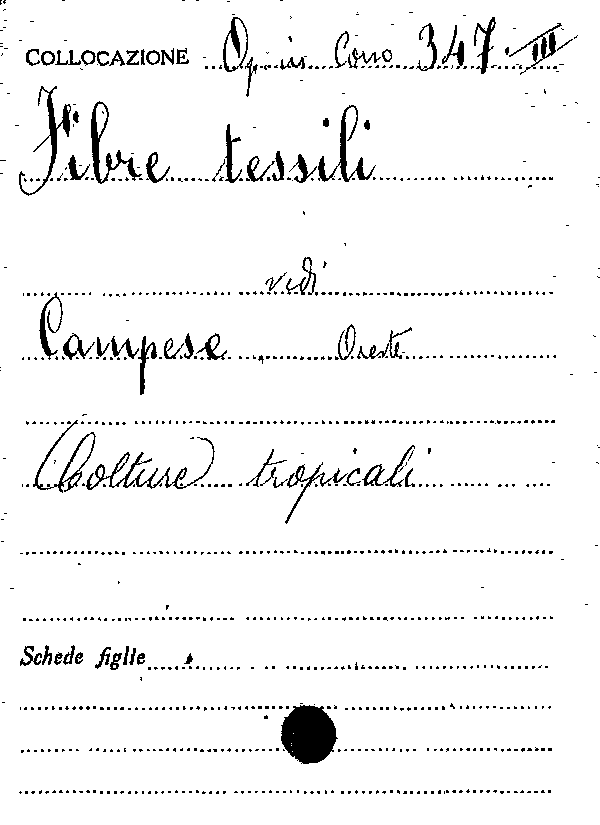 COLLOCAZIONE Op. in Cons 347. III
Fibre tessili
vedi
Campese Oreste
(Colture) tropicali
Schede figlie